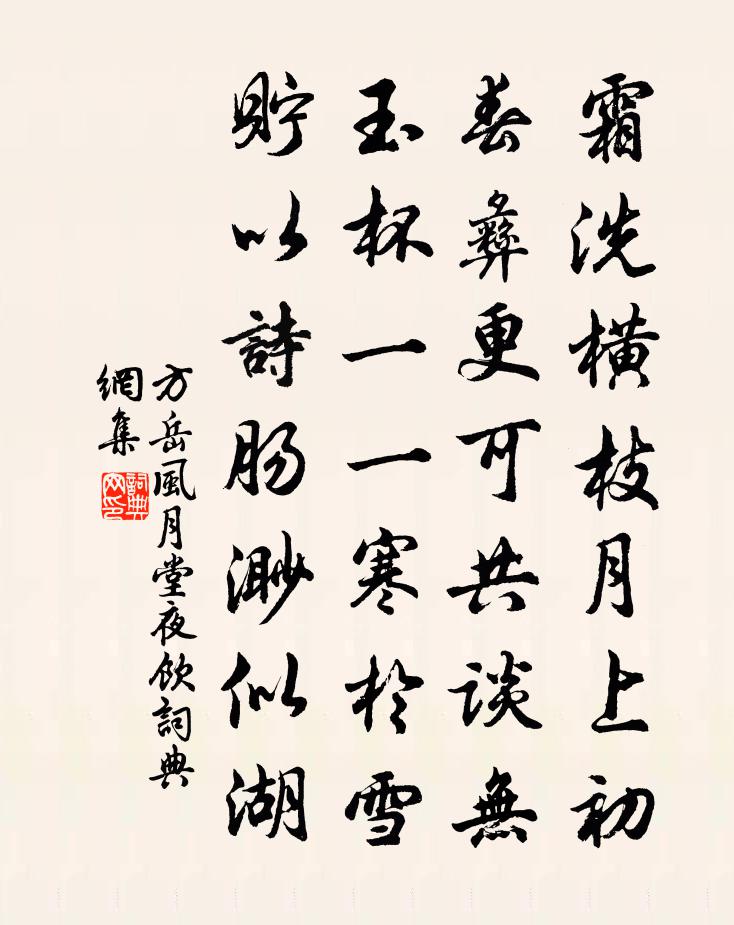 霜洗橫枝月上初
春彝更可共談無
玉杯一一寒於雪
貯以詩腸渺似湖
方岳風月堂夜飲詞典
網集
詞典
网印